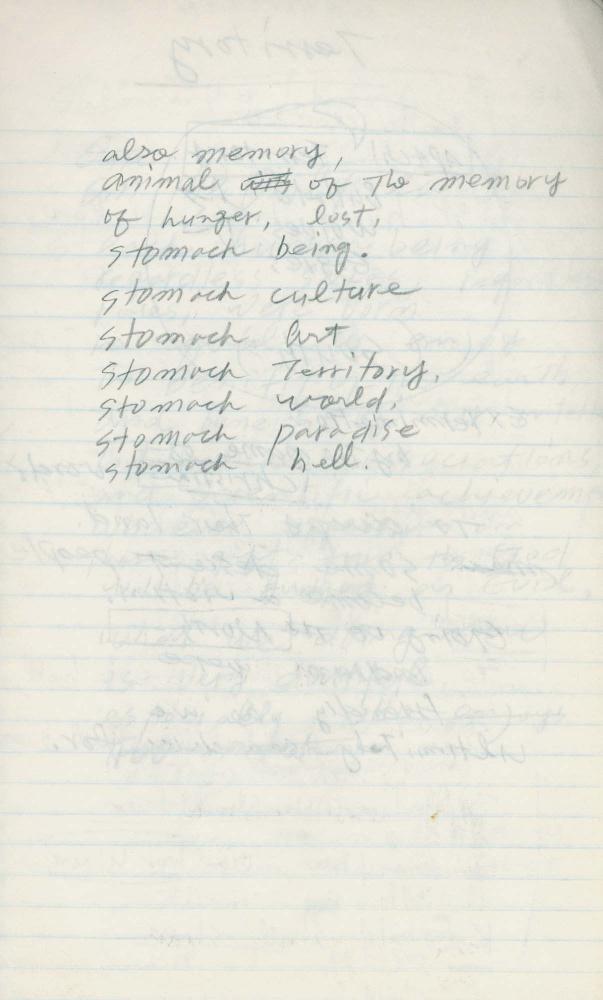 also memory,
animal of The memory
of hunger, lost,
stomach being.
stomach culture
stomach Art
stomach Territory.
stomach world.
stomach paradise
stomach hell.